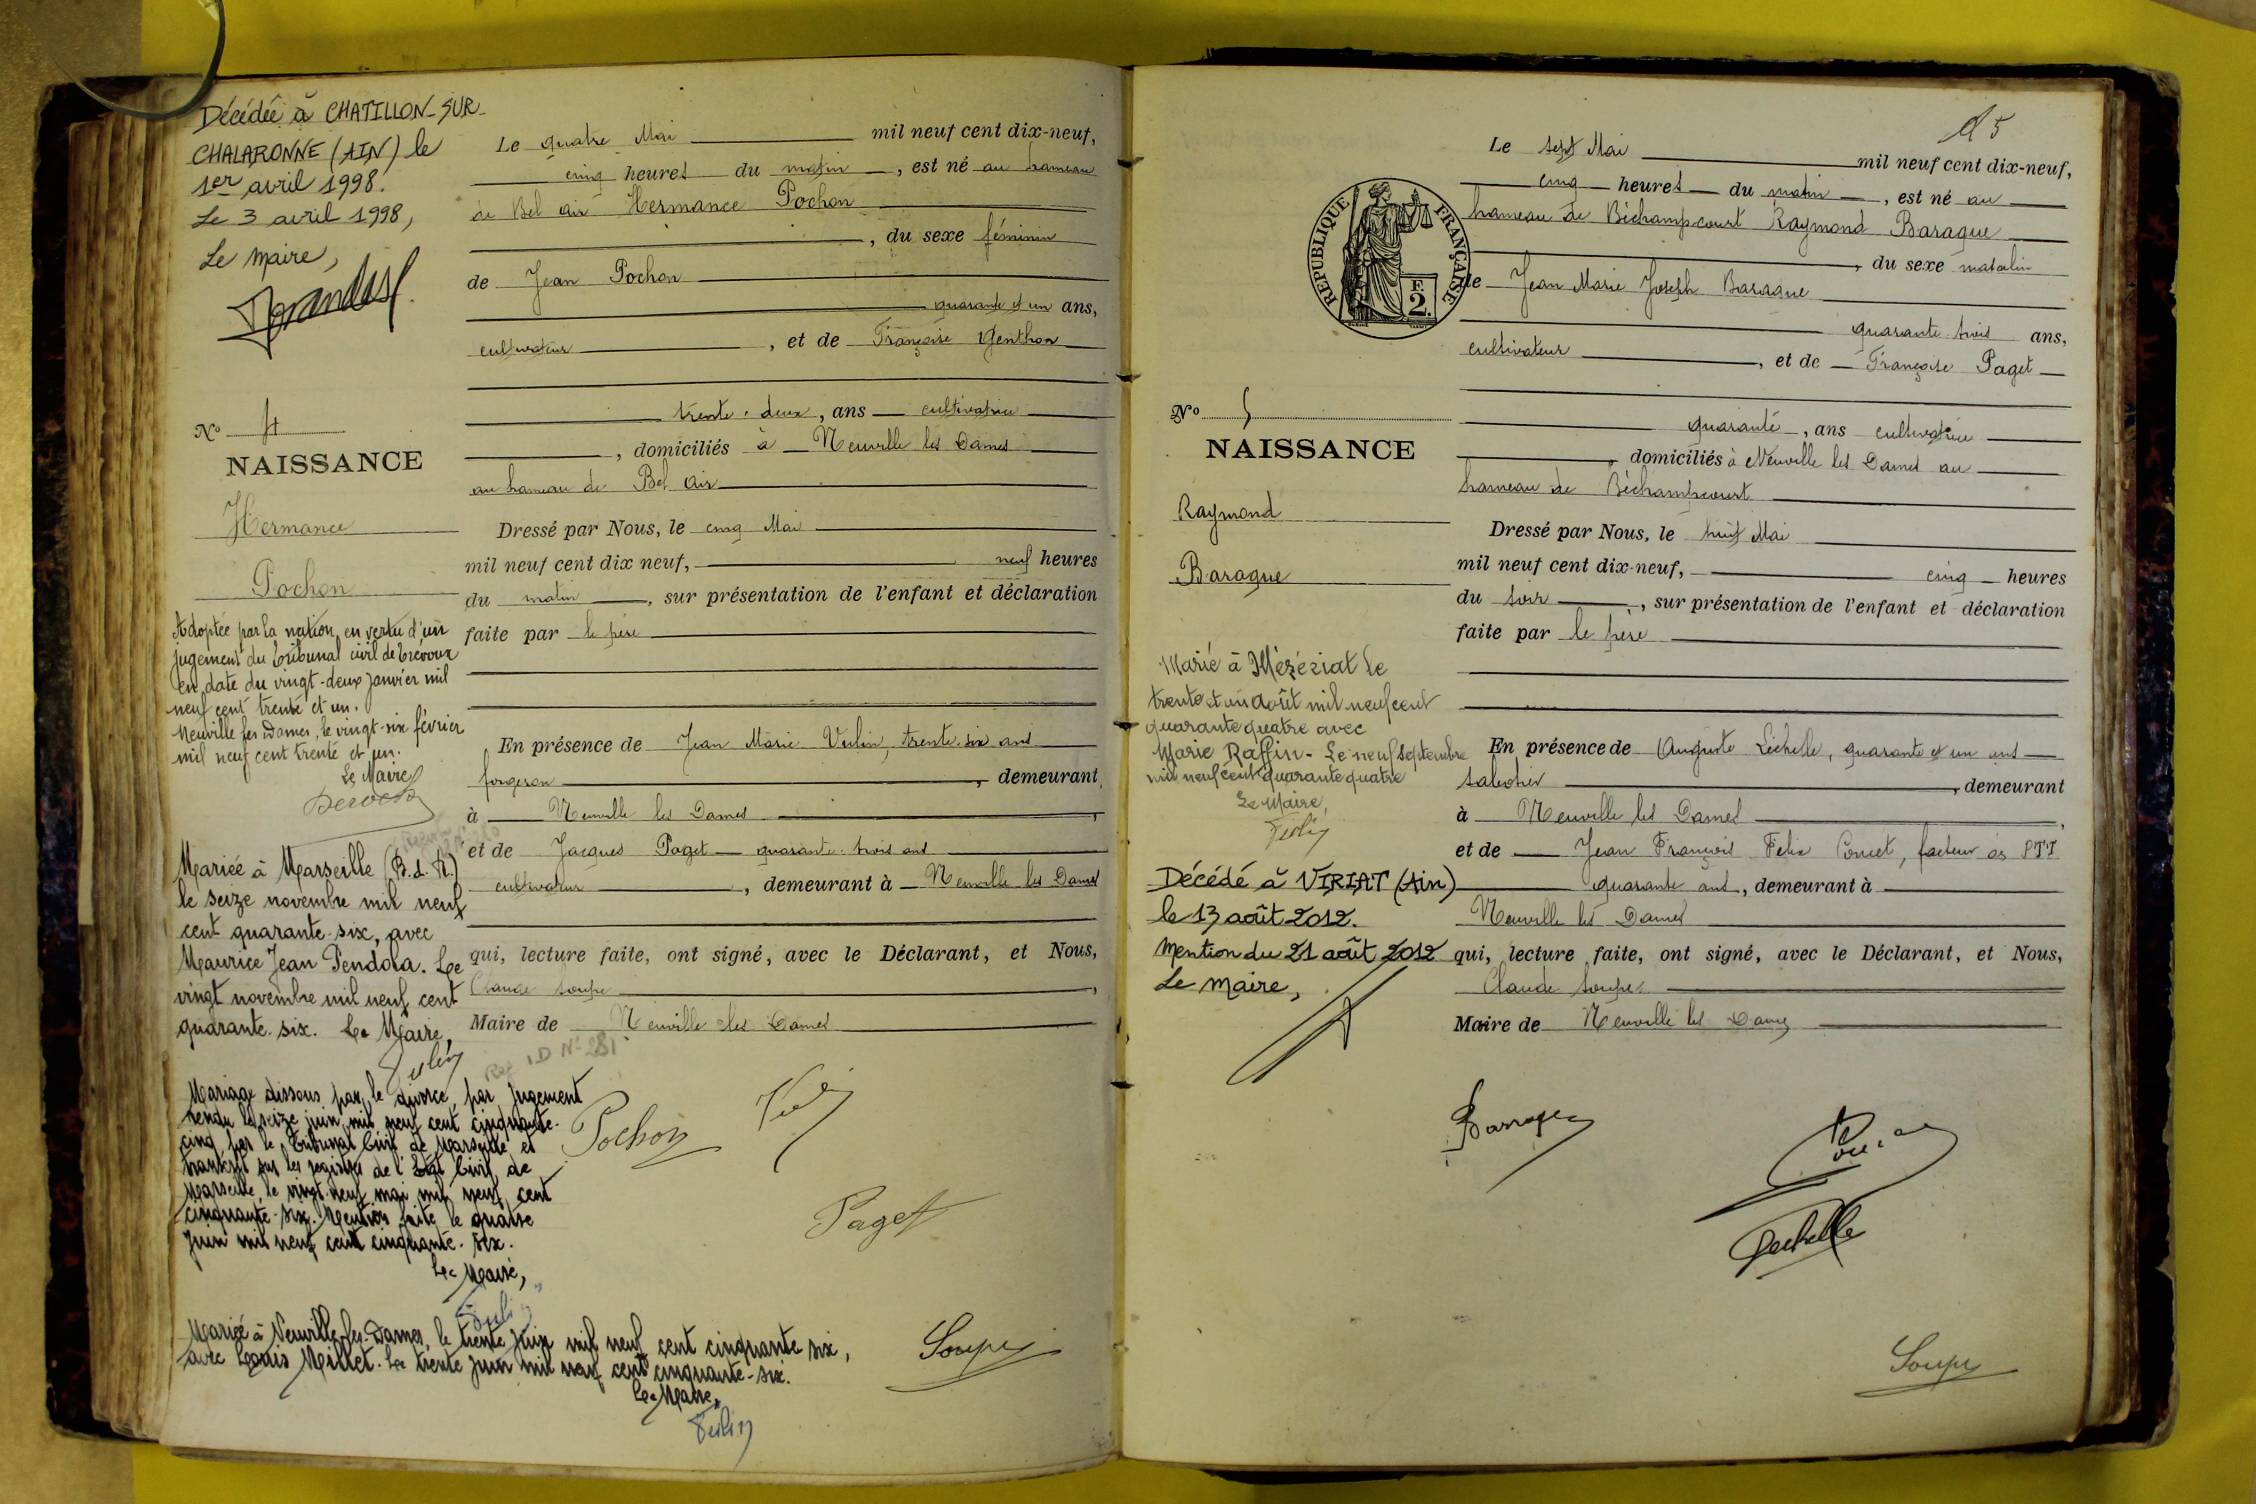 Décédée à CHATILLON-SUR-
CHALARONNE (AIN) le
1er avril 1998.
Le 3 avril 1998,
Le Maire,
No 4
NAISSANCE
Hermance
Pochon
Adoptée par la nation en vertu d'un
jugement du tribunal civil de Trévoux
en date du vingt-deux janvier mil
neuf cent trente et un.
Neuville les Dames, le vingt-six février
mil neuf cent trente et un.
Le Maire
Mariée à Marseille (B.d.R.)
le seize novembre mil neuf
cent quarante-six, avec
Maurice Jean Pendola. Le
vingt novembre mil neuf cent
quarante-six. Le Maire,
Mariage dissous par le divorce, par jugement
rendu le seize juin mil neuf cent cinquante-
cinq par le Tribunal Civil de Marseille et
transcrit sur les registres de l'Etat Civil de
Marseille le vingt-neuf mai mil neuf cent
cinquante-six. Mention faite le quatre
juin mil neuf cent cinquante-six.
Le Maire,
Mariée à Neuville-les-Dames, le trente juin mil neuf cent cinquante six,
avec Louis Millet. Le trente juin mil neuf cent cinquante-six.
Le Maire,
Le quatre Mai mil neuf cent dix-neuf,
cinq heures du matin, est né au hameau
de Bel Air Hermance Pochon
, du sexe féminin
de Jean Pochon
quarante et un ans,
cultivateur, et de Françoise Genthon
trente-deux, ans cultivatrice
, domiciliés à Neuville les Dames
au hameau de Bel Air
Dressé par Nous, le cinq Mai
mil neuf cent dix neuf, neuf heures
du matin, sur présentation de l'enfant et déclaration
faite par le père
En présence de Jean Marie Vulin, trente-six ans
forgeron, demeurant
à Neuville les Dames,
et de Jacques Paget quarante-trois ans
cultivateur, demeurant à Neuville les Dames
qui, lecture faite, ont signé, avec le Déclarant, et Nous,
Claude Soupe,
Maire de Neuville les Dames
Reg ID No 281
Pochon
Paget
Soupe
15
REPUBLIQUE FRANÇAISE
F.
2.
No 5
NAISSANCE
Raymond
Baraque
Marié à Mézériat le
trente et un août mil neuf cent
quarante quatre avec
Marie Raffin - Le neuf septembre
mil neuf cent quarante quatre
Le Maire,
Décédé à VIRIAT (Ain)
le 13 août 2012.
Mention du 21 août 2012
Le Maire,
Le sept Mai mil neuf cent dix-neuf,
cinq heures du matin, est né au
hameau de Béchampcourt Raymond Baraque
, du sexe masculin
de Jean Marie Joseph Baraque
quarante-trois ans,
cultivateur, et de Françoise Paget
quarante, ans cultivatrice
, domiciliés à Neuville les Dames au
hameau de Béchampcourt
Dressé par Nous, le huit Mai
mil neuf cent dix-neuf, cinq heures
du soir, sur présentation de l'enfant et déclaration
faite par le père
En présence de Auguste Léchelle, quarante et un ans
sabotier, demeurant
à Neuville les Dames,
et de Jean François Felix Poncet, facteur des PTT
quarante ans, demeurant à
Neuville les Dames
qui, lecture faite, ont signé, avec le Déclarant, et Nous,
Claude Soupe
Maire de Neuville les Dames
Baraque
Lechelle
Soupe